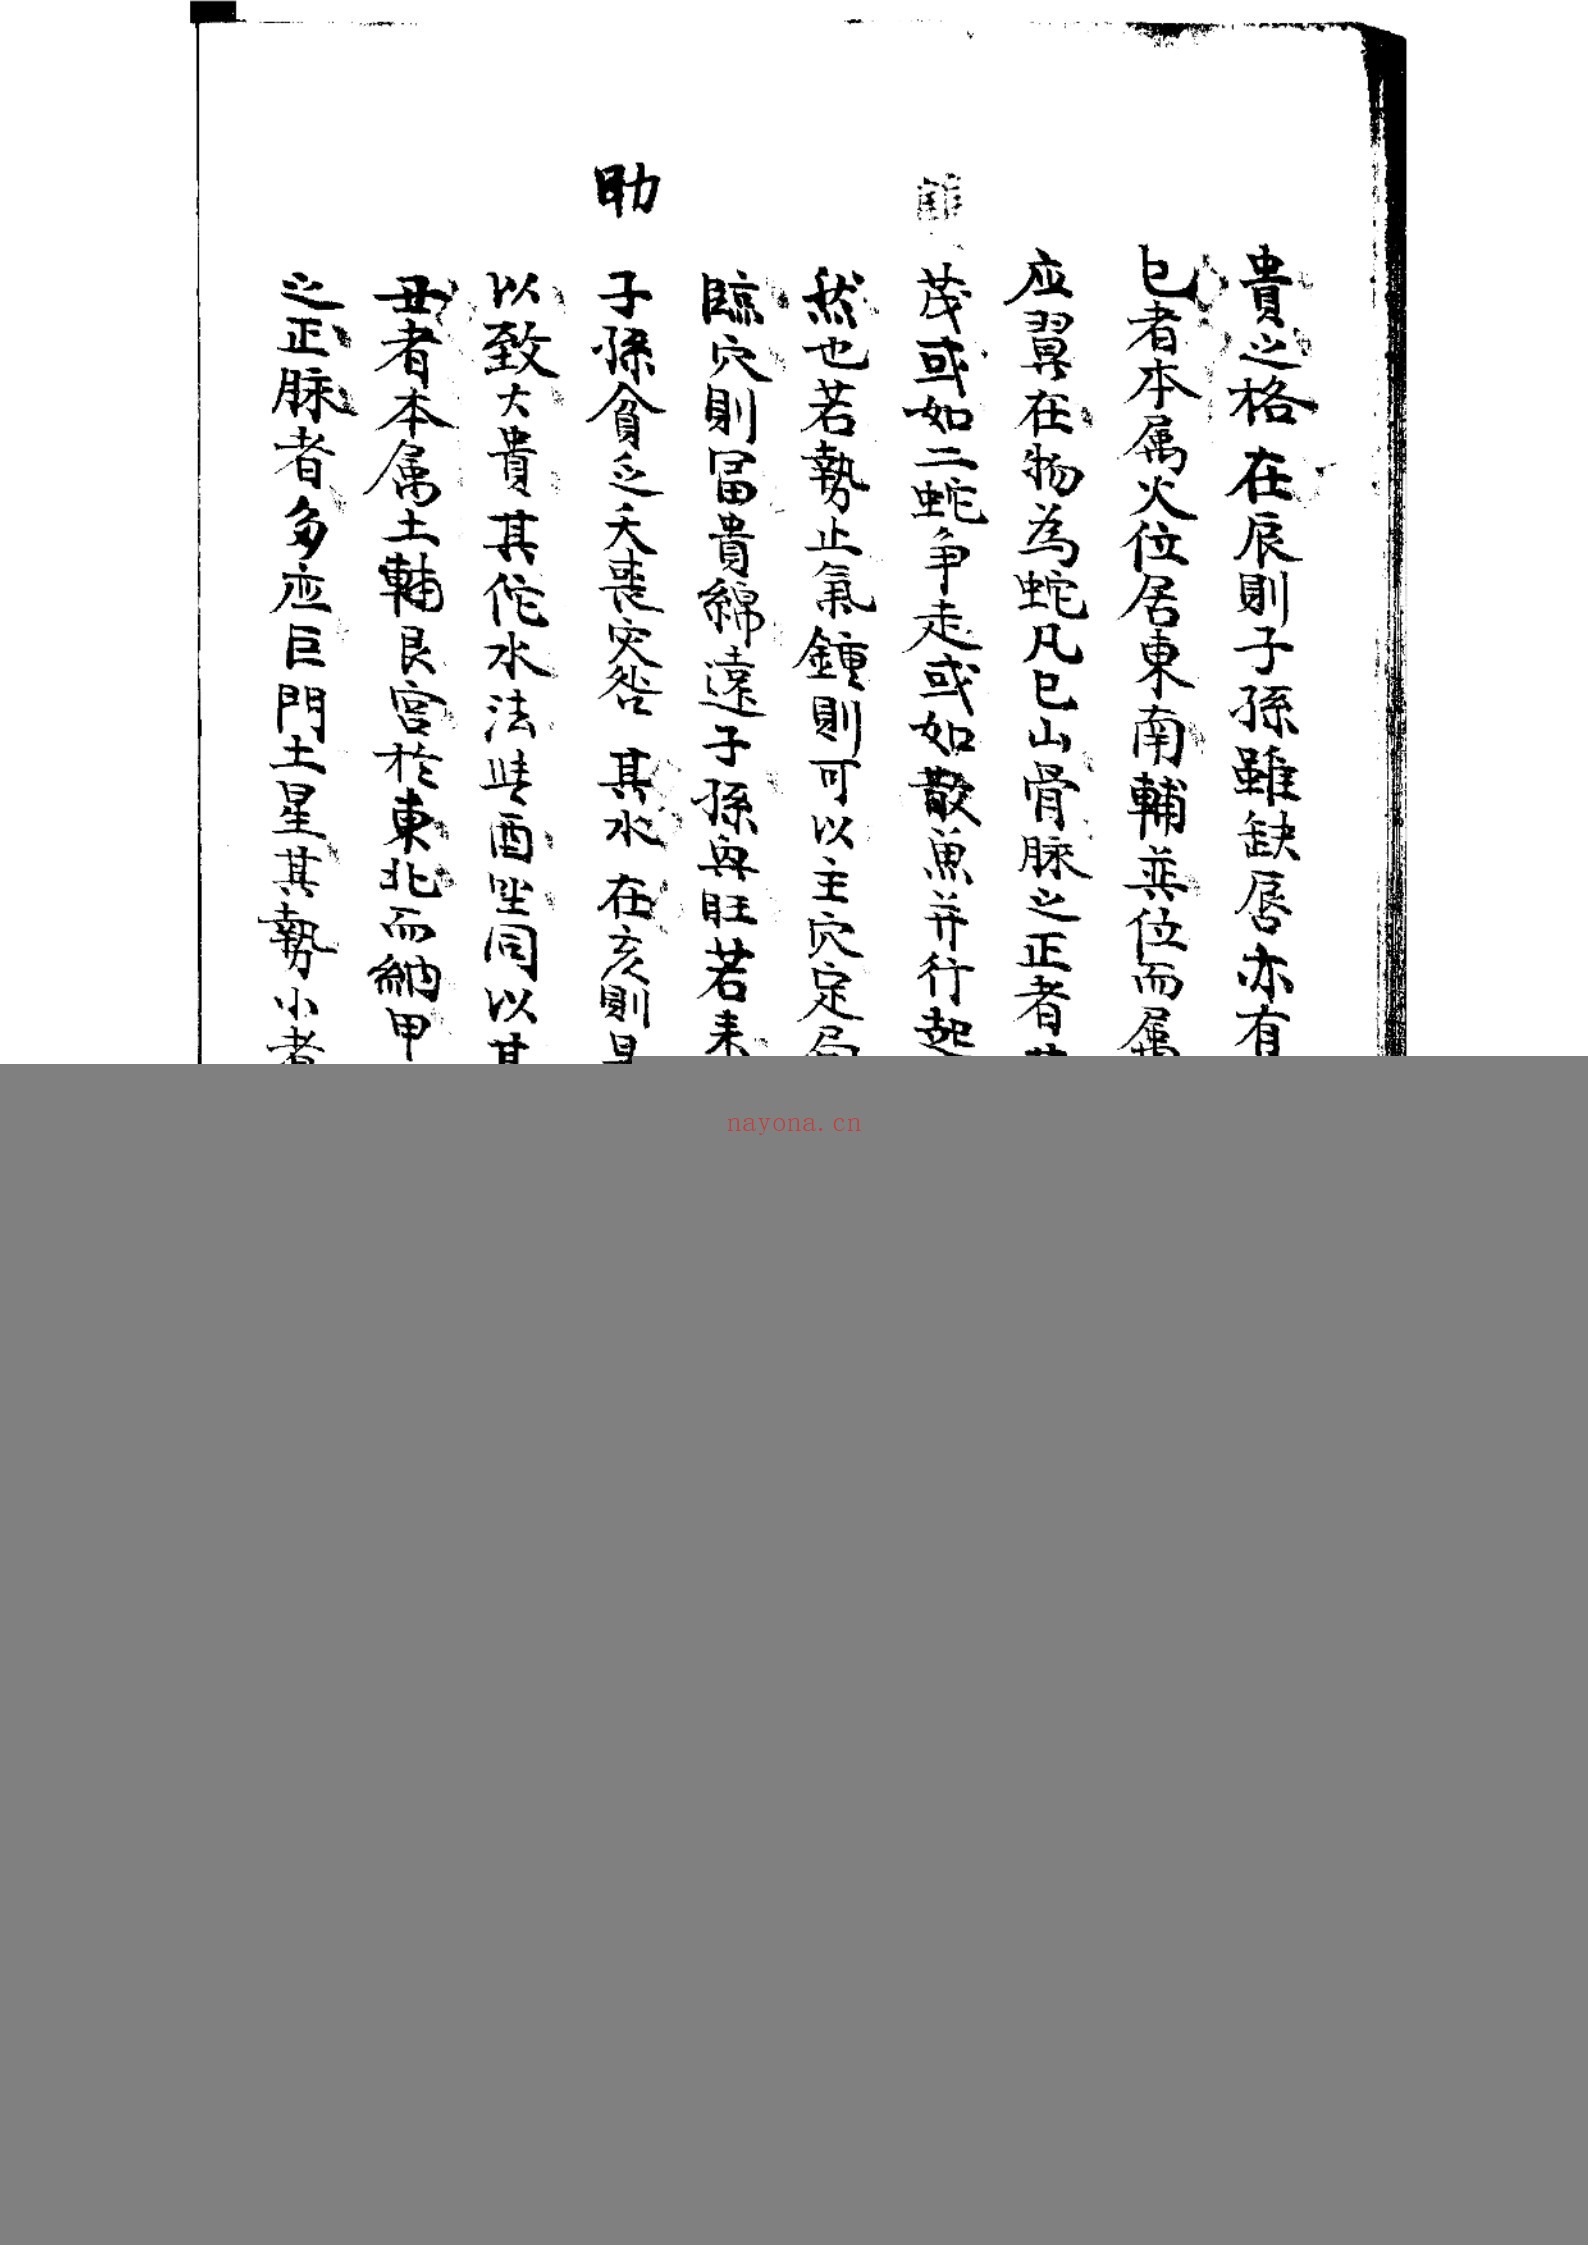 貴之格在辰則子孫雖缺唇亦有
巳者本属火位居東南輔巽位而属
应翼在物為蛇凡巳山骨脉之正者
茂或如二蛇争走或如散魚并行起
然也若勢止氣鍾則可以主穴定局
臨穴則冨貴綿遠子孫興旺若来
助
子孫貧乏夭喪灾咎其水在亥則
以致大貴其佗水法与酉坐同以其
丑者本属土輔艮宮於東北而納甲
之正脉者多应巨門土星其勢小者
nayona.cn